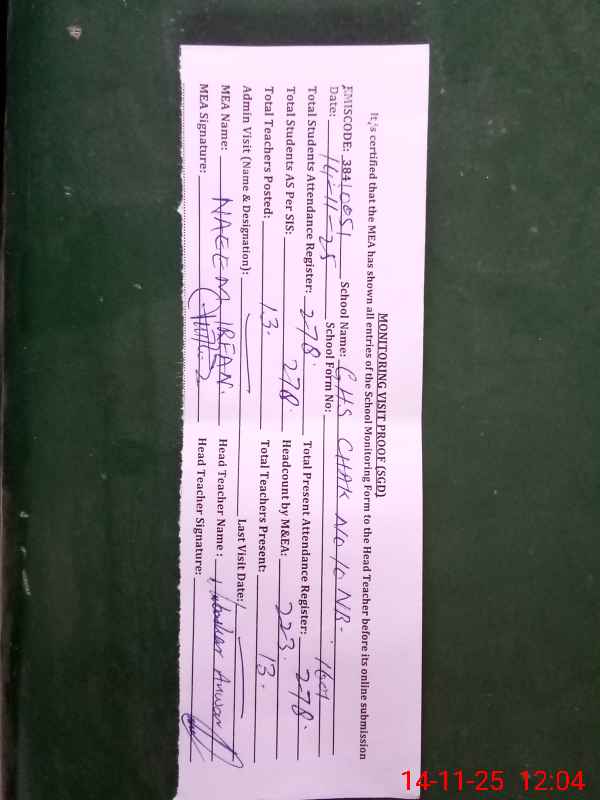 MONITORING VISIT PROOF (SGD)
It,s certified that the MEA has shown all entries of the School Monitoring Form to the Head Teacher before its online submission
EMISCODE: 38410051 School Name: GHS CHAK NO 10 NB.
Date: 14-11-25 School Form No:
Total Students Attendance Register: 278. Total Present Attendance Register: 278.
Total Students AS Per SIS: 278. Headcount by M&EA: 223.
Total Teachers Posted: 13. Total Teachers Present: 13.
Admin Visit (Name & Designation): Last Visit Date:
MEA Name: NAEEM IRFAN. Head Teacher Name : Anwar
MEA Signature: Head Teacher Signature:
14-11-25 12:04